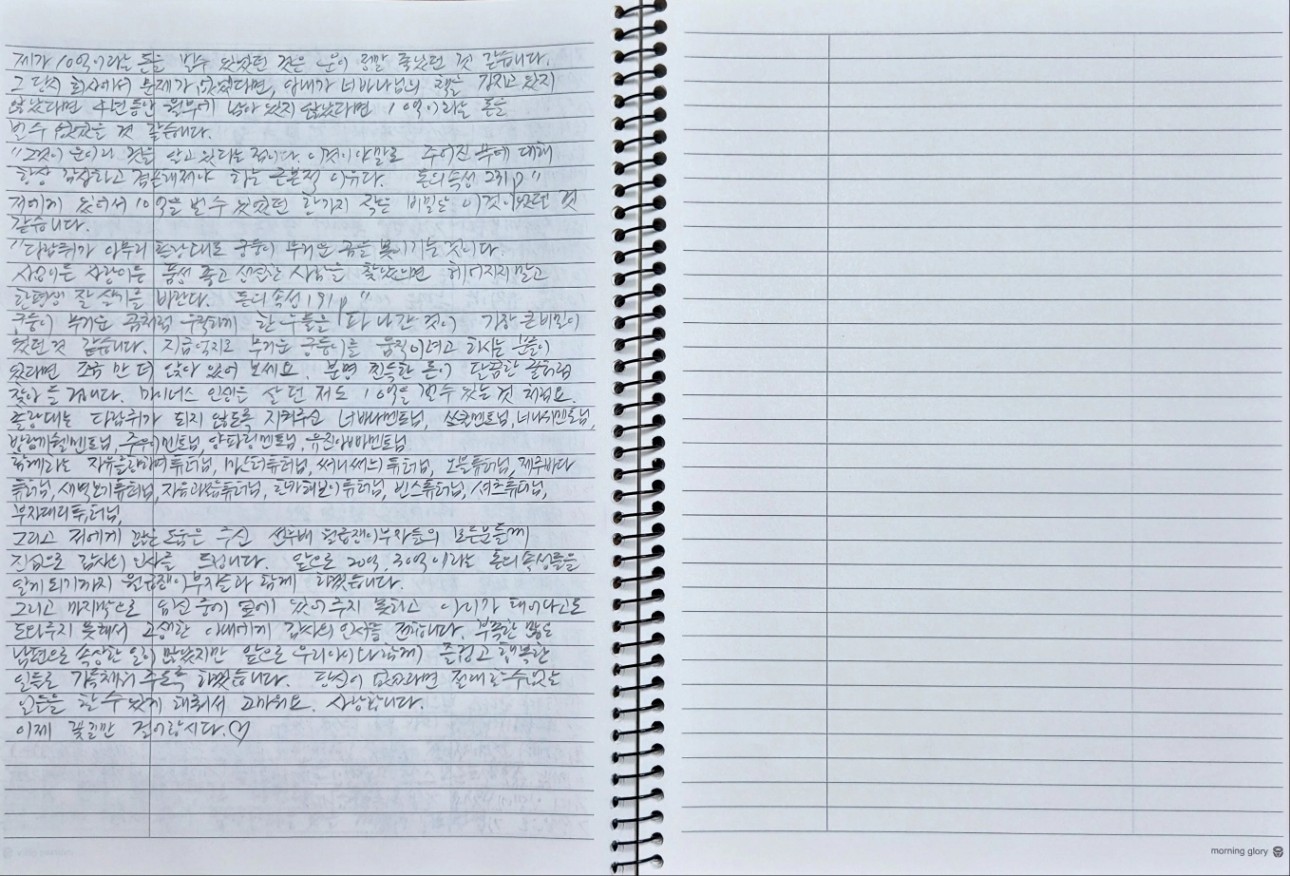 제가 10억이라는 돈을 벌수 있었던 것은 운이 정말 좋았던 것 같습니다.
그 당시 회사에서 문제가 없었다면, 아내가 너바나님의 책을 가지고 있지
않았다면 4년동안 월부에 남아 있지 않았다면 10억이라는 돈을
벌수 없었을 것 같습니다.
"그것이 운이라는 것을 알고 있다는 점입니다. 이것이야말로 주어진 부에 대해
항상 감사하고 겸손해져야 하는 근본적 이유다. 돈의속성 231p"
저에게 있어서 10억을 벌수 있었던 한가지 작은 비밀은 이것이었던 것
같습니다.
"다람쥐가 아무리 촐랑대도 궁둥이 무거운 곰을 못이기는 것이다.
사업이든 사랑이든 품성 좋고 신중한 사람을 찾았으면 헤어지지말고
한평생 잘 살기를 바란다. 돈의 속성 191p"
궁둥이 무거운 곰처럼 우직하게 한 우물을 파 나간 것이 가장 큰비밀이
었던 것 같습니다. 지금억지로 무거운 궁둥이를 움직이려고 하시는 분들이
있다면 조금 만 더 앉아 있어 보세요. 분명 찐득한 돈이 달콤한 꿀처럼
찾아 올 겁니다. 마이너스 인생을 살 던 저도 10억을 벌수 있는 것 처럼요.
촐랑대는 다람쥐가 되지 않도록 지켜주신 너바나멘토님, 멘토님, 너나위멘토님,
방랑까칠멘토님, 주우이멘토님, 양파링멘토님, 유진아빠멘토님
함께하는 자유를향하여튜터님, 마스터튜터님, 써니써니튜터님, 오블튜터님, 제주바다
튜터님, 새벽보기튜터님, 자유튜터님, 튜터님, 빈스튜터님, 셔츠튜터님,
부자대디튜터님,
그리고 저에게 많은 도움을 주신 선후배 월급쟁이부자들의 모든분들께
진심으로 감사의 인사를 드립니다. 앞으로 20억, 30억이라는 돈의속성들을
알게되기까지 월급쟁이부자들과 함께 하겠습니다.
그리고 마지막으로 임신 중에 옆에 있어 주지 못하고 아이가 태어나고도
도와주지 못해서 고생한 아내에게 감사의 인사를 전합니다. 부족한 많은
남편으로 속상한 일이 많았지만 앞으로 우리아이와 함께 즐겁고 행복한
일들로 가득채워 주도록 하겠습니다. 당신이 없었다면 절대할수없는
일들을 할 수 있게 해줘서 고마워요. 사랑합니다.
이제 꽃길만 걸어갑시다.♡
morning glory